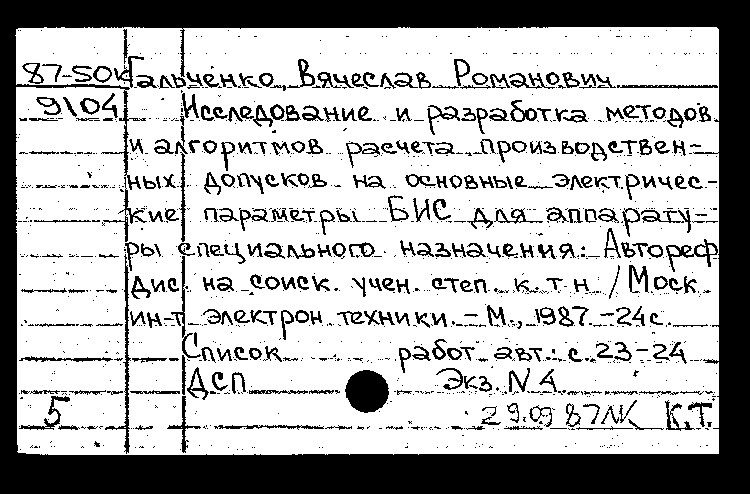 87-50к Гальченко, Вячеслав Романович
9104 Исследование и разработка методов
и алгоритмов расчета производствен-
ных допусков на основные электричес-
кие параметры БИС для аппарату-
ры специального назначения: Автореф
дис. на соиск. учен. степ. к.т.н / Моск
ин-т электрон. техники. - М., 1987. - 24 с.
Список работ авт.: с. 23-24
ДСП Экз. N 4
5 29.09 87 К.Т.